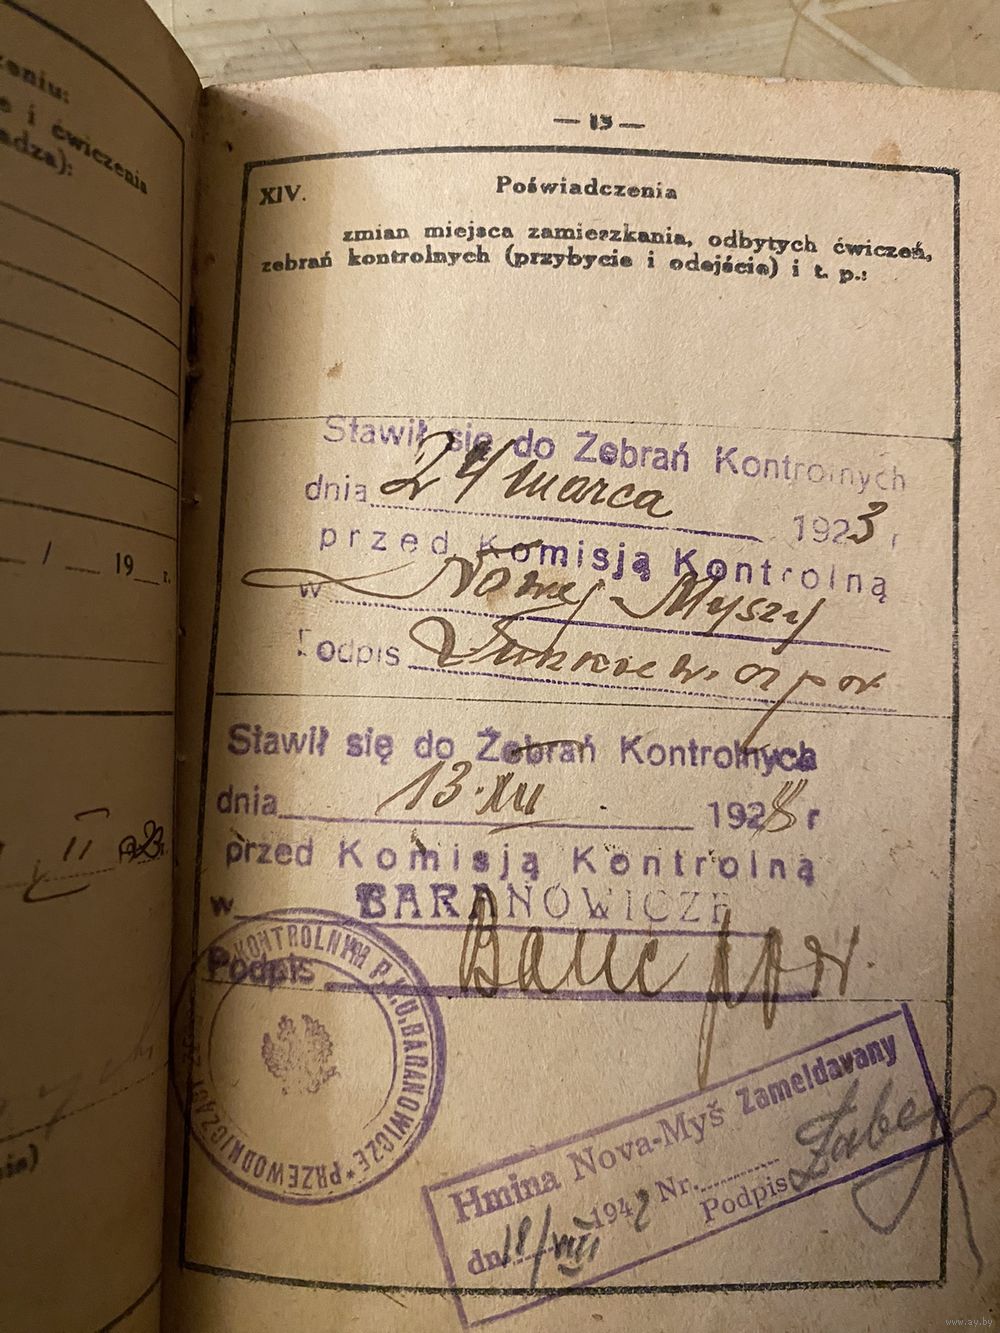 zeniu:
e i ćwiczenia
adza):
/ 19 r.
II
— 13 —
XIV. Poświadczenia
zmian miejsca zamieszkania, odbytych ćwiczeń,
zebrań kontrolnych (przybycie i odejście) i t. p.:
Stawił się do Zebrań Kontrolnych
dnia 24 marca 1923 r
przed Komisją Kontrolną
w Nowej Myszy
Podpis por
Stawił się do Zebrań Kontrolnych
dnia 13.XII 1928 r
przed Komisją Kontrolną
w BARANOWICZE
Podpis por.
KONTROLNYM P.K.U. BARANOWICZE * PRZEWODNICZĄCY
Hmina Nova-Myš Zameldavany
dn. 18/VIII 1942 Nr. Podpis
www.ay.by